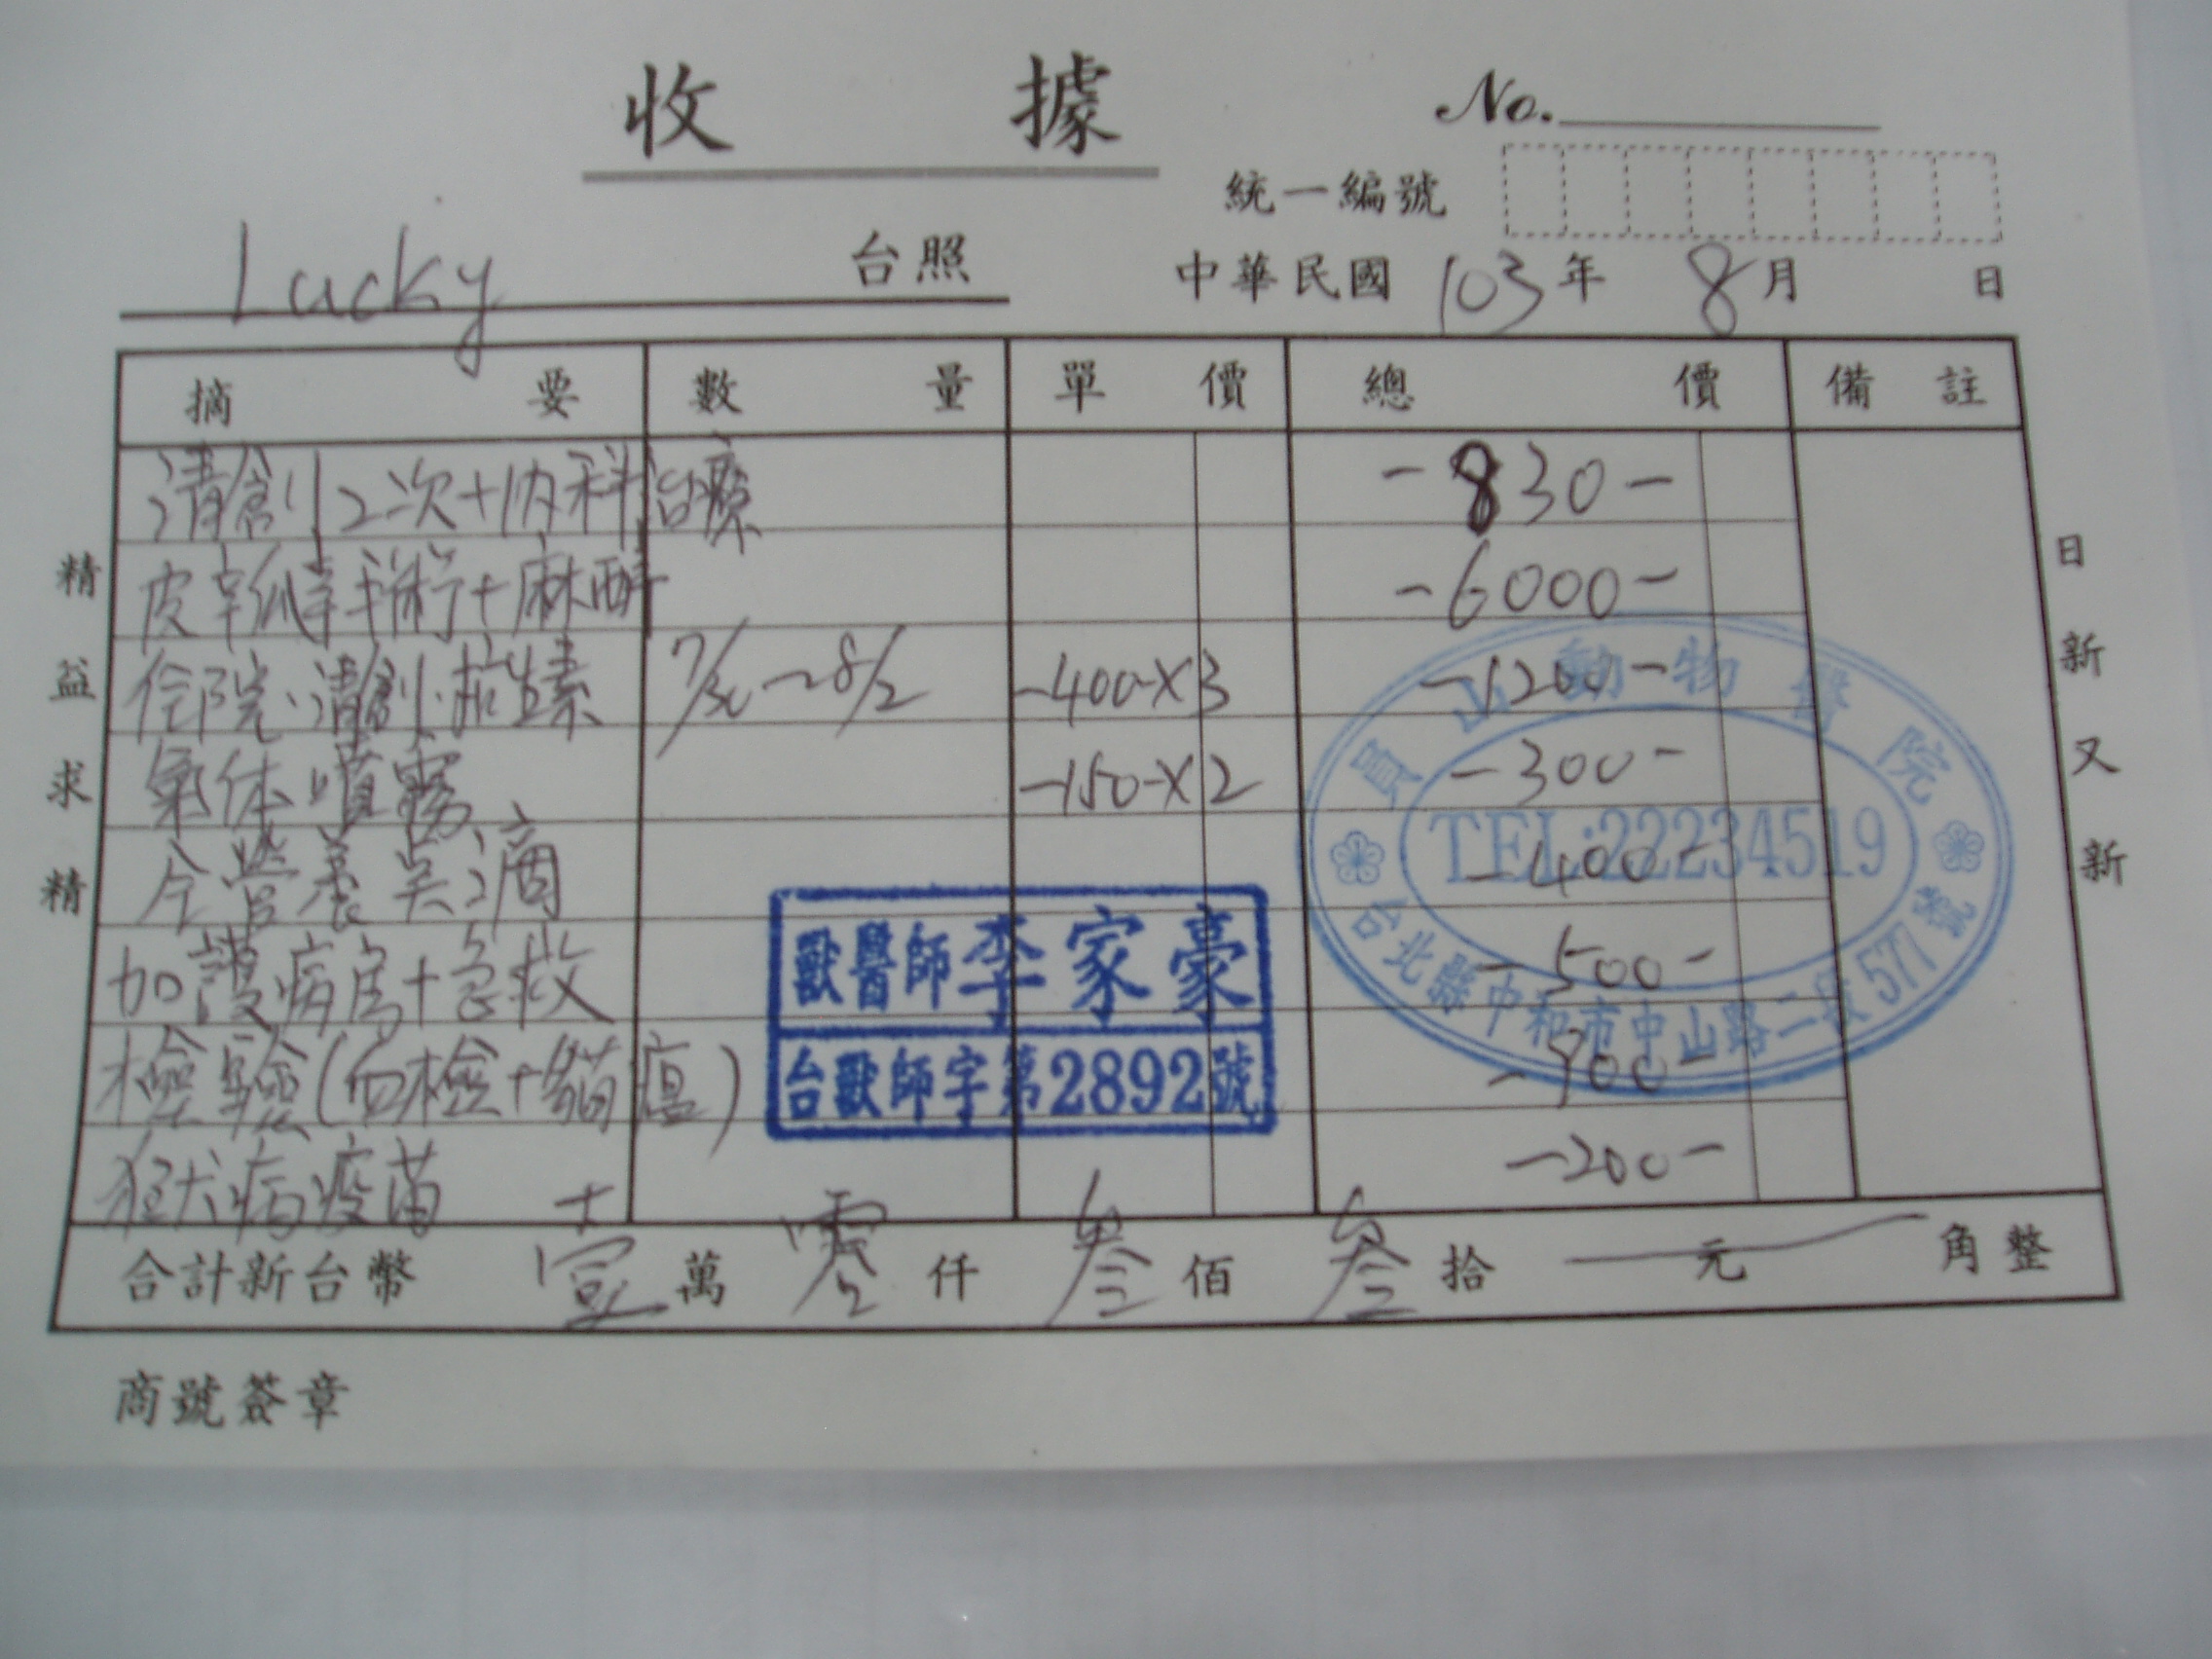 收據
No.
統一編號
Lucky 台照
中華民國 103 年 8 月 日
摘要 數量 單價 總價 備註
清創2次+內科治療 -830-
皮瓣縫手術+麻醉 -6000-
住院.清創.抗生素 7/30~8/2 -400-X3 -1200-
氣体噴霧 -150-X2 -300-
全營養点滴 -400-
加護病房+急救 -500-
檢驗(血檢+貓瘟) -900-
狂犬病疫苗 -200-
合計新台幣 壹萬零仟叁佰叁拾 元 角整
商號簽章
精益求精
日新又新
獸醫師 李家豪
台獸師字第2892號
員山動物醫院
TEL:22234519
台北縣中和市中山路二段577號